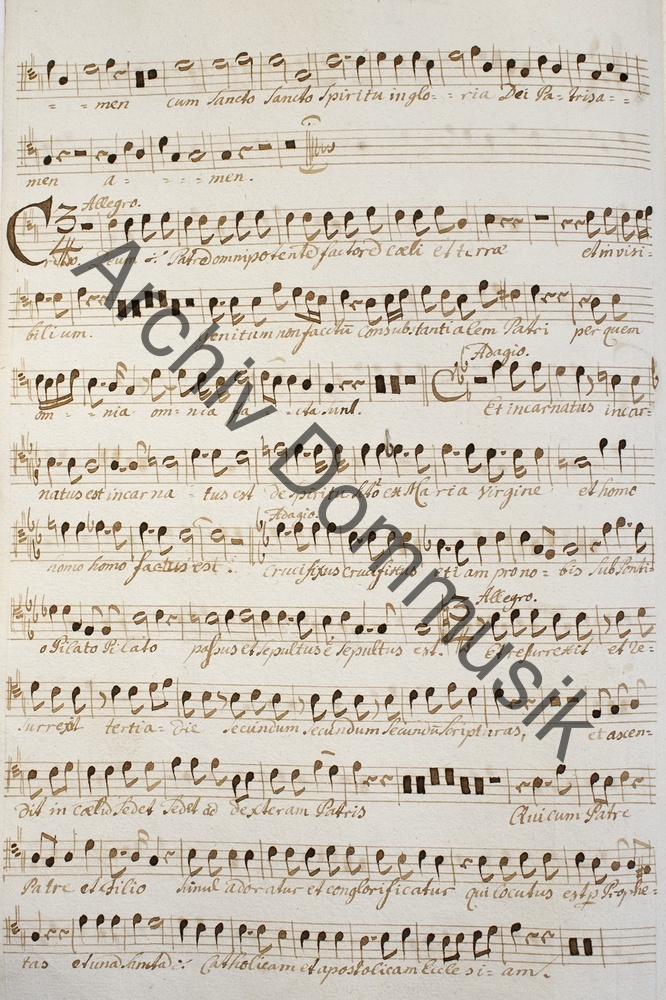 = = men cum Sancto Sancto Spiritu in glo = = ria Dei Pa = trisa = =
men a = = = = men.
Allegro.
Patrē omnipotentē factorē cæli et terræ et in visi=
bilium. genitum non factū consubstantialem Patri per quem
Adagio.
om = = nia om = nia fa = cta sunt. Et incarnatus incar=
natus est incarna = tus est de Spiritu Sto ex Maria virgine et homo
Adagio.
homo homo factus est. Crucifixus crucifixus etiam pro no = bis Sub Ponti=
Allegro.
o Pilato Pilato passus et sepultus è sepultus est. Et resurrexit et re=
surrexit tertia = die secundum secundum secundū scripturas, et ascen=
dit in cælū sedet sedet ad dexteram Patris Qui cum Patre
Patre et filio simul adoratur et conglorificatur qui locutus est p Prophe=
tas et unā sanctā Catholicam et apostolicam Eccle si = am.
Archiv Dommusik